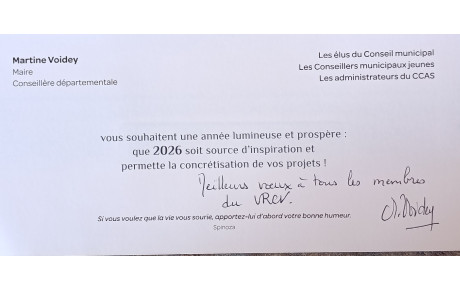 Martine Voidey
Maire
Conseillère départementale
Les élus du Conseil municipal
Les Conseillers municipaux jeunes
Les administrateurs du CCAS
vous souhaitent une année lumineuse et prospère :
que 2026 soit source d'inspiration et
permette la concrétisation de vos projets !
Meilleurs vœux à tous les membres
du VRCV.
Si vous voulez que la vie vous sourie, apportez-lui d'abord votre bonne humeur.
Spinoza
M. Voidey